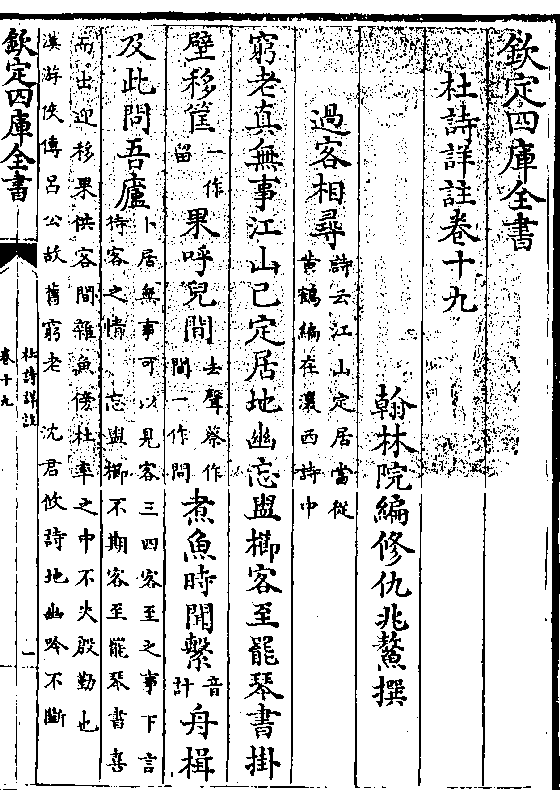 欽定四庫全書
杜詩詳註卷十九
翰林院編修仇兆鰲撰
過客相尋
詩云江山定居當從
黄鶴編在瀼西詩中
窮老真無事江山已定居地幽忘盥櫛客至罷琴書掛
壁移筐
一作
留
果呼兒間
去聲蔡作
間一作問
煮魚時聞繫
音
計
舟楫
及此問吾廬
卜居無事可以見客三四客至之事下言
待客之情　忘盥櫛不期客至罷琴書喜
而出迎移果供客間雜魚傍杜率之中不失殷勤也
漢游俠傳呂公故舊窮老　沈君攸詩地幽吟不斷
欽定四庫全書
杜詩詳註
卷十九
一